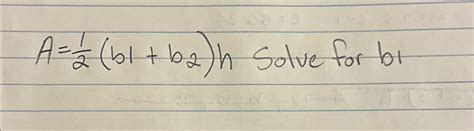 A=1/2 (b1 + b2)h Solve for b1